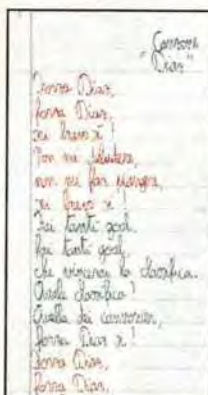 " Canzone
Diaz"
Forza Diaz,
forza Diaz,
sei bravo x!
Non mi deludere,
non mi far piangere,
sei bravo x!
Fai tanti goal,
fai tanti goal,
che vincerai la classifica.
Quale classifica?
Quella dei cannonieri,
forza Diaz x!
Forza Diaz,
forza Diaz,